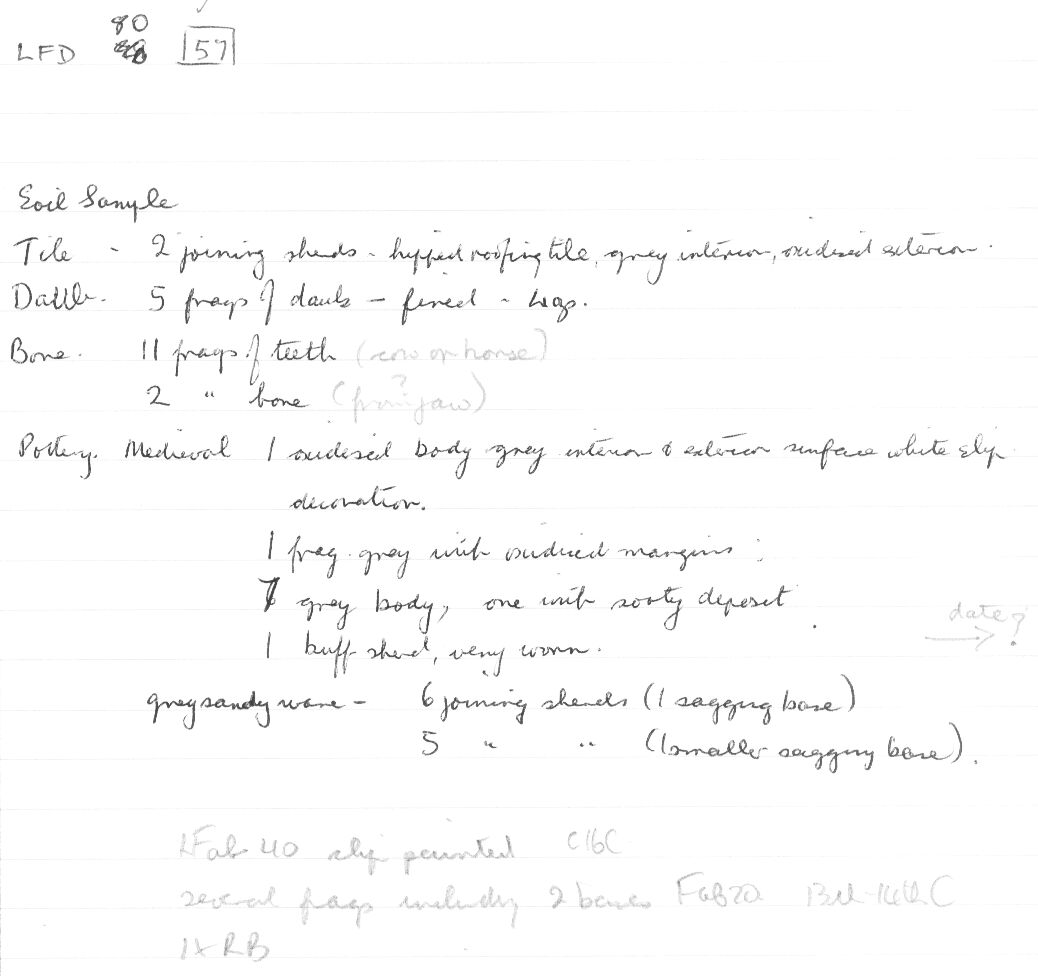 80
LFD [57]
Soil Sample
Tile - 2 joining sherds - hipped roofing tile, grey interior, oxidised exterior.
Daub. 5 frags of daub - fired -
Bone. 11 frags of teeth (cow or horse)
2 " bone (from jaw) ?
Pottery. Medieval 1 oxidised body grey interior & exterior surface white slip
decoration.
1 frag. grey with oxidised margins
7 grey body, one with sooty deposit
date?
1 buff sherd, very worn.
grey sandy ware - 6 joining sherds (1 sagging base)
5 " " (1 smaller sagging base).
1 Fab 40 slip painted C16C
several frags including 2 bases Fab 20 13th-14th C
1x RB